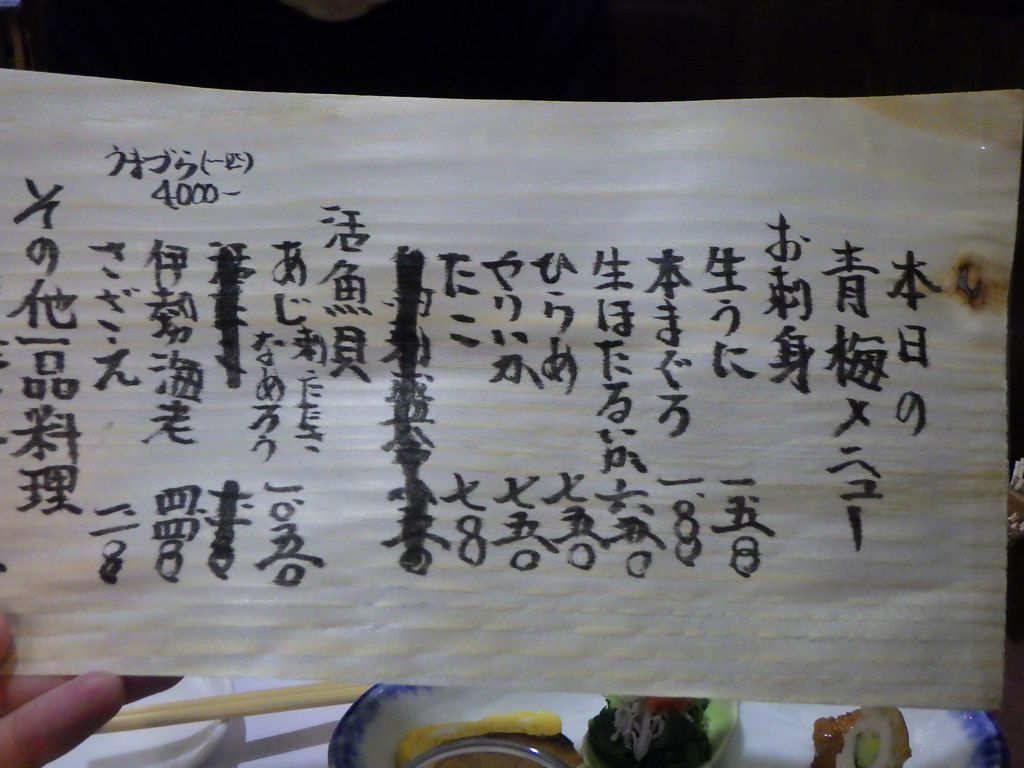 本日の
青梅メニュー
お刺身
生うに 一、五〇〇
本まぐろ 一、〇〇〇
生ほたるいか 六五〇
ひらめ 七五〇
やりいか 七五〇
たこ 七〇〇
活魚貝
あじ 刺、たたき なめろう 一、〇五〇
伊勢海老 四、四〇〇
さざえ
うまづら(一匹)
4000~
その他一品料理